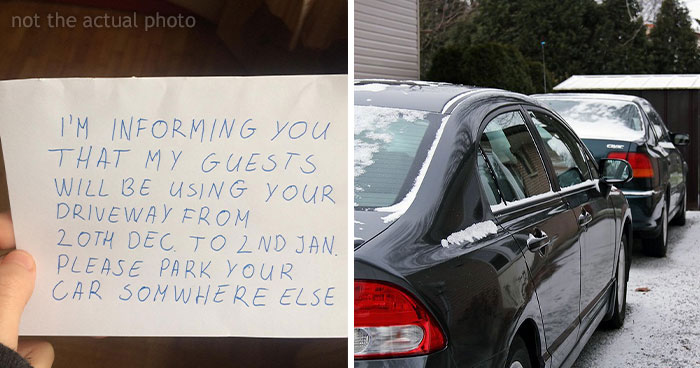 not the actual photo
I'M INFORMING YOU
THAT MY GUESTS
WILL BE USING YOUR
DRIVEWAY FROM
20TH DEC. TO 2ND JAN.
PLEASE PARK YOUR
CAR SOMWHERE ELSE
CIVIC